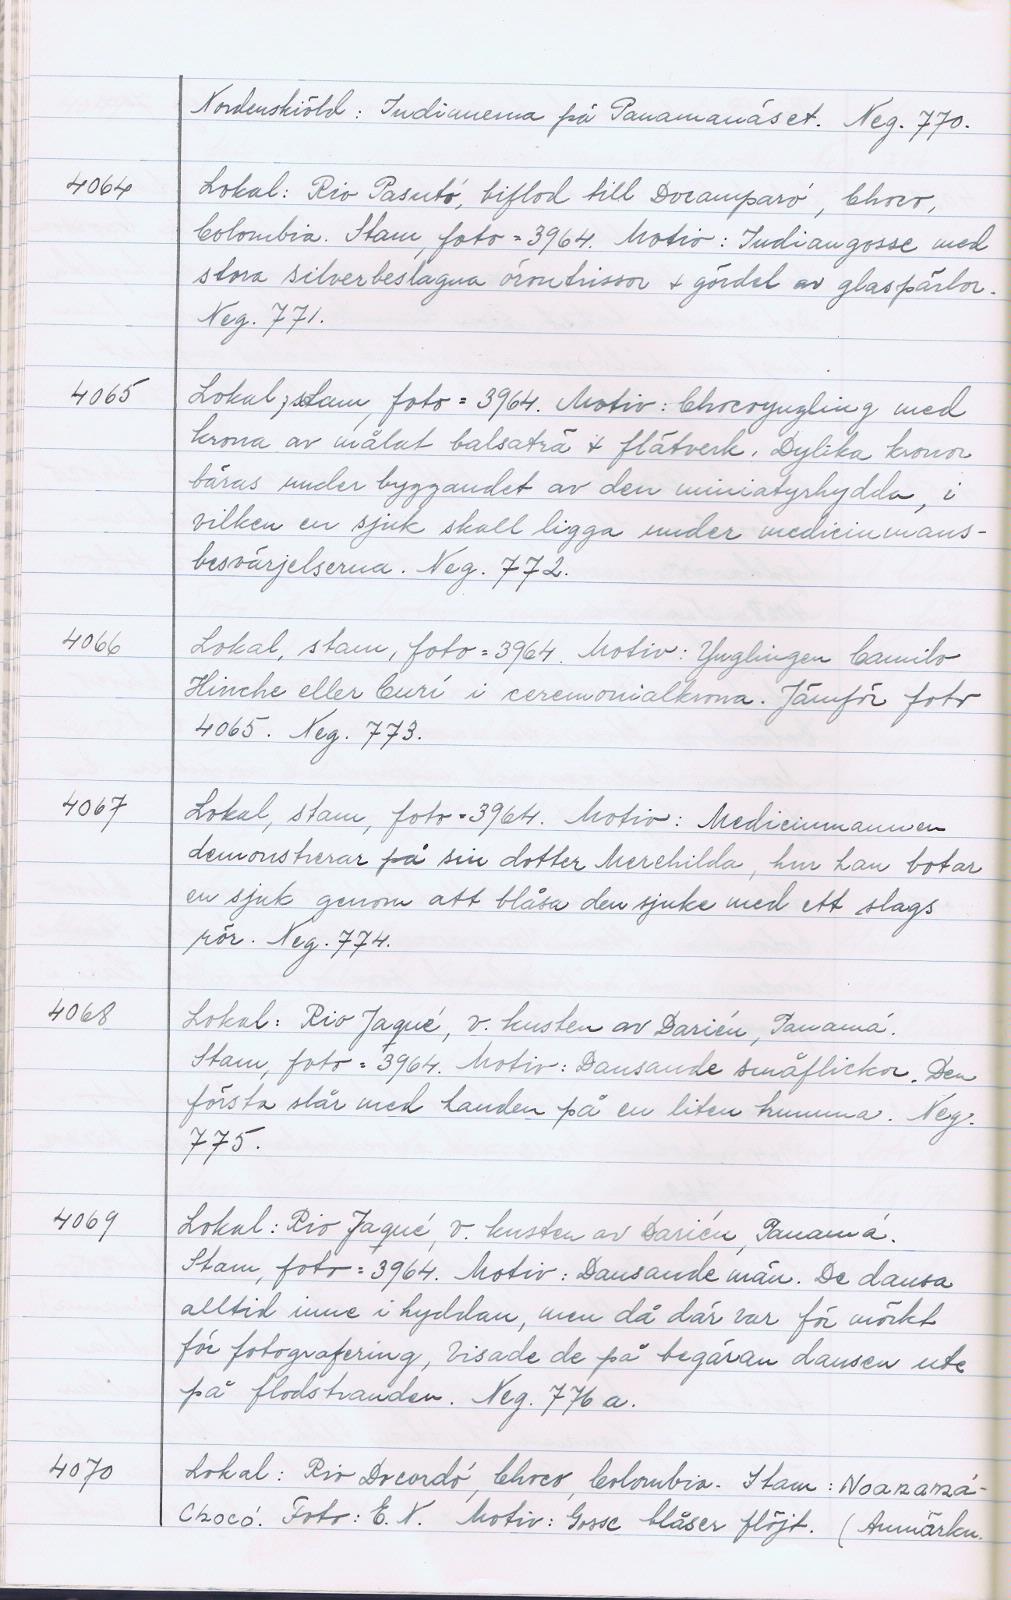 Nordenskiöld: Indianerna på Panamanäset. Neg. 770.
4064 Lokal: Rio Pasutó, biflod till Docamparó, Choco,
Colombia. Stam, foto = 3964. Motiv: Indiangosse med
stora silverbeslagna örontrissor & gördel av glaspärlor.
Neg. 771.
4065 Lokal, stam, foto = 3964. Motiv: Chocoyngling med
krona av målat balsaträ & flätverk. Dylika kronor
bäras under byggandet av den miniatyrhydda, i
vilken en sjuk skall ligga under medicinmans-
besvärjelserna. Neg. 772.
4066 Lokal, stam, foto = 3964. Motiv: Ynglingen Camilo
Hinche eller Curí i ceremonialkrona. Jämför foto
4065. Neg. 773.
4067 Lokal, stam, foto = 3964. Motiv: Medicinmannen
demonstrerar på sin dotter Merchilda, hur han botar
en sjuk genom att blåsa den sjuke med ett slags
rör. Neg. 774.
4068 Lokal: Rio Jaqué, v. kusten av Darién, Panamá.
Stam, foto = 3964. Motiv: Dansande småflickor. Den
första slår med handen på en liten trumma. Neg.
775.
4069 Lokal: Rio Jaqué, v. kusten av Darién, Panamá.
Stam, foto = 3964. Motiv: Dansande män. De dansa
alltid inne i hyddan, men då där var för mörkt
för fotografering, visade de på begäran dansen ute
på flodstranden. Neg. 776 a.
4070 Lokal: Rio Docordó, Choco, Colombia. Stam: Noanamá-
Chocó. Foto: E. N. Motiv: Gosse blåser flöjt. (Anmärkn.